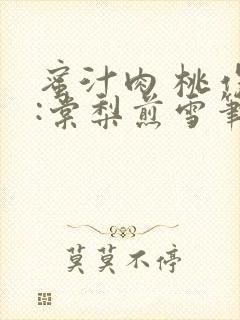 蜜汁肉桃作
:棠梨煎雪筆
莫莫不停